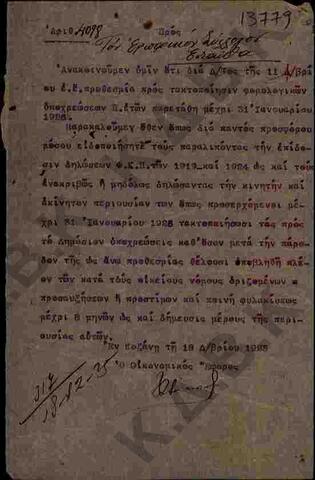 13779
Ἀριθ. 4098 Πρός
Τόν Ἐμπορικόν Σύλλογον
Ἐνταῦθα
Ἀνακοινοῦμεν ὑμῖν ὅτι διά Δ/τος τῆς 11 Δ/βρί
ου ἐ.ἔ. προθεσμία πρός τακτοποίησιν φορολογικῶν
ὑποχρεώσεων Π. ἐτῶν παρετάθη μέχρι 31 Ἰανουαρίου
1926.
Παρακαλοῦμεν ὅθεν ὅπως διά παντός προσφόρου
μέσου εἰδοποιήσητε τούς παραλιπόντας τήν ἐπίδο-
σιν δηλώσεων Φ.Κ.Π. τῶν 1919 καί 1924 ὡς καί τούς
ἀνακριβῶς ἤ μηδόλως δηλώσαντας τήν κινητήν καί
ἀκίνητον περιουσίαν των ὅπως προσερχόμενοι
μέχρι 31 Ἰανουαρίου 1926 τακτοποιήσωσι τάς πρός
τό Δημόσιον ὑποχρεώσεις καθ'ὅσον μετά τήν πάρο-
δον τῆς ὡς ἄνω προθεσμίας θέλουσι ὑποβληθῆ πλέ-
ον τῶν κατά τούς οἰκείους νόμους ὁριζομένων
προσαυξήσεων ἤ προστίμων καί ποινῇ φυλακίσεως
μέχρι 6 μηνῶν ὡς καί δήμευσις μέρους τῆς περι-
ουσίας αὐτῶν.
Ἐν Κοζάνῃ τῇ 18 Δ/βρίου 1925
Ὁ Οἰκονομικός Ἔφορος
317
18-12-25